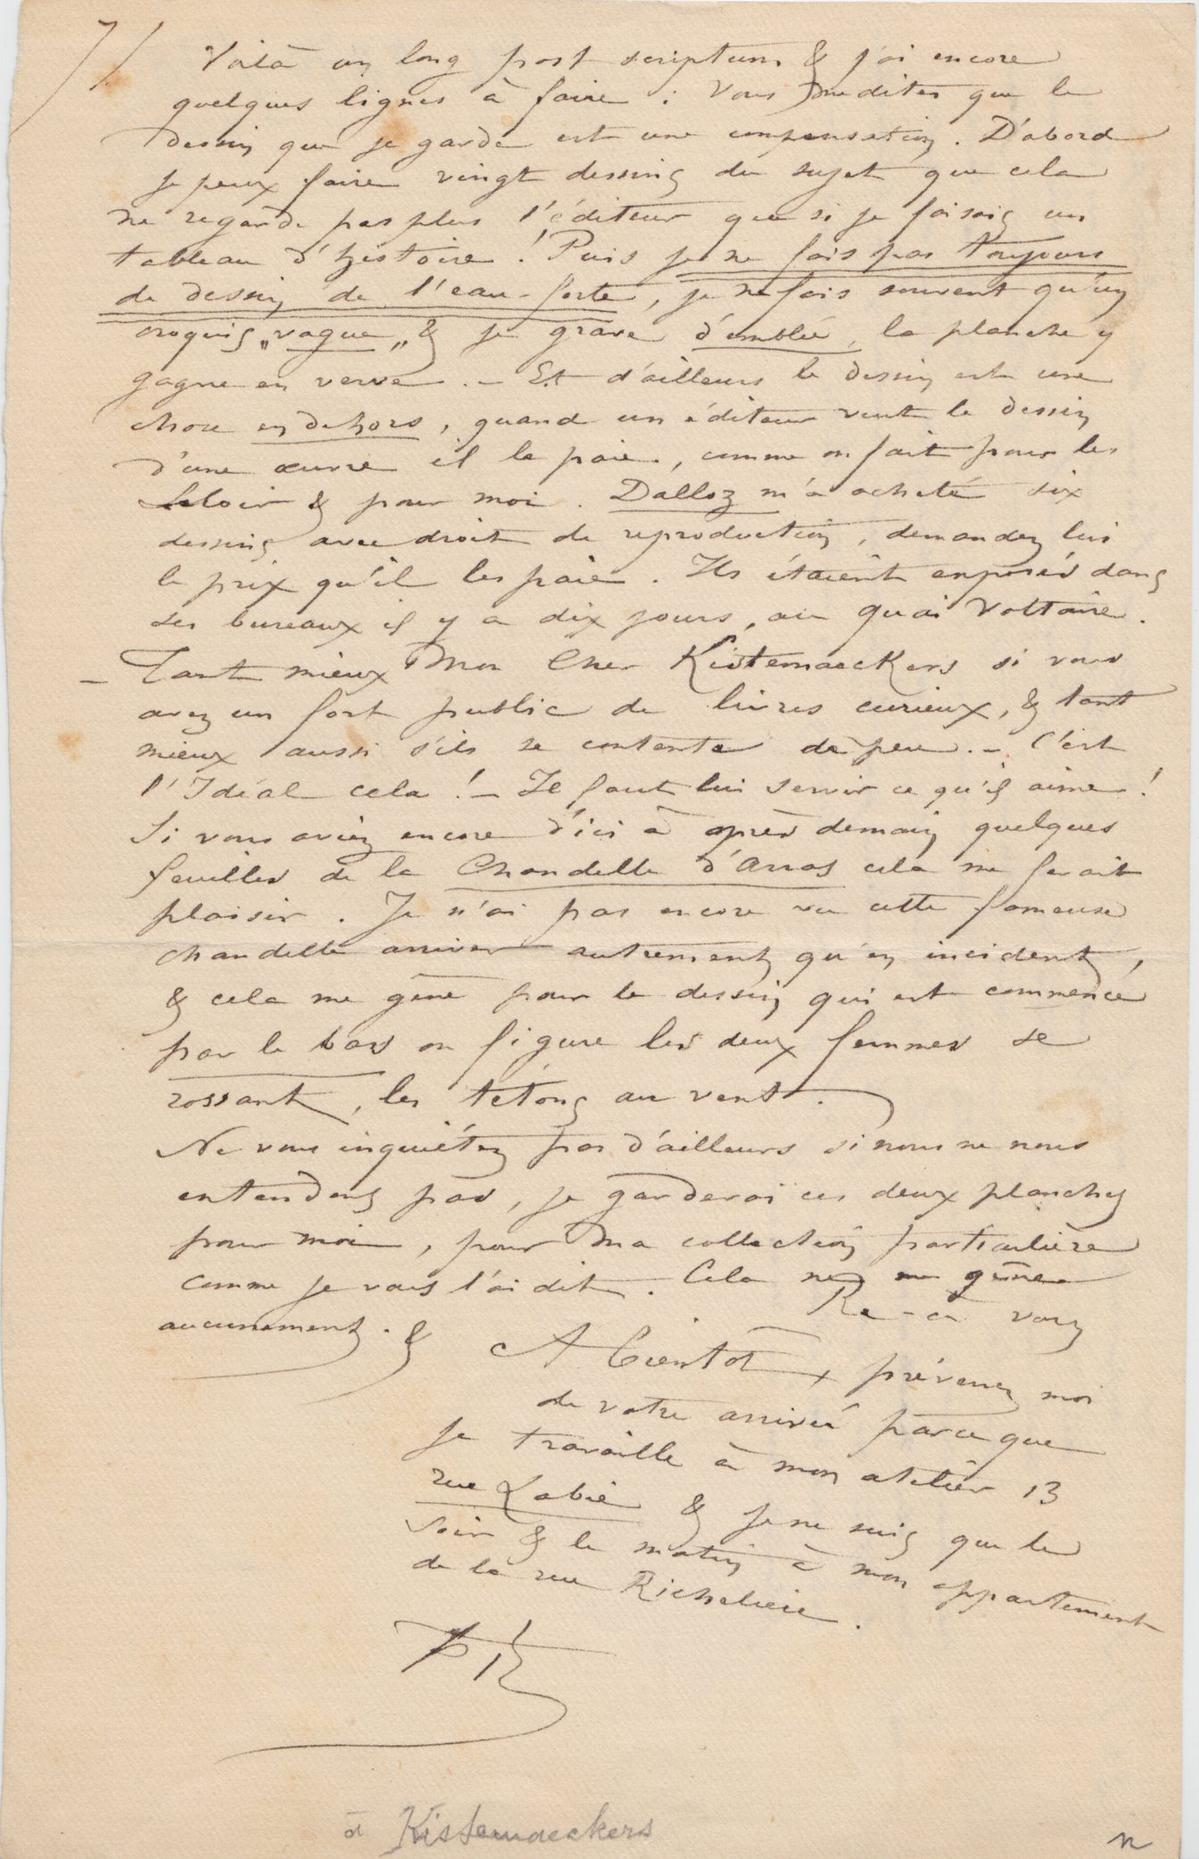 7/
Voilà un long post scriptum & j'ai encore
quelques lignes à faire : Vous me dites que le
dessin que je garde est une compensation. D'abord
je peux faire vingt dessins du sujet que cela
ne regarde pas plus l'éditeur que si je faisais un
tableau d'histoire ! Puis je ne fais pas toujours
de dessin de l'eau-forte, je ne fais souvent qu'un
croquis „vague„ & je grave d'emblée, la planche y
gagne en verve. — Et d'ailleurs le dessin est une
chose en dehors, quand un éditeur veut le dessin
d'une œuvre il le paie, comme on fait pour les
Leloir & pour moi. Dalloz m'a acheté six
dessins avec droit de reproduction, demandez lui
le prix qu'il les paie. Ils étaient exposés dans
ses bureaux il y a dix jours, au quai Voltaire.
— Tant mieux Mon Cher Kistemaeckers si vous
avez un fort public de livres curieux, & tant
mieux aussi s'ils se contente de peu. — C'est
l'Idéal cela ! — Il faut lui servir ce qu'il aime !
Si vous aviez encore d'ici à après demain quelques
feuilles de la Chandelle d'Arras cela me ferait
plaisir. Je n'ai pas encore vu cette fameuse
chandelle arriver autrement qu'en incident,
& cela me gêne pour le dessin qui est commencé
par le bas on figure les deux femmes se
rossant, les tétons au vent.
Ne vous inquiétez pas d'ailleurs si nous ne nous
entendons pas, je garderai ces deux planches
pour moi, pour Ma collection particulière
comme je vous l'ai dit. Cela ne me gêne
aucunement. & Re-à vous
A Bientôt, prévenez moi
de votre arrivée parce que
je travaille à mon atelier 13
rue Labie & je ne suis que le
soir & le matin à mon appartement
de la rue Richelieu.
à Kistemaeckers
n